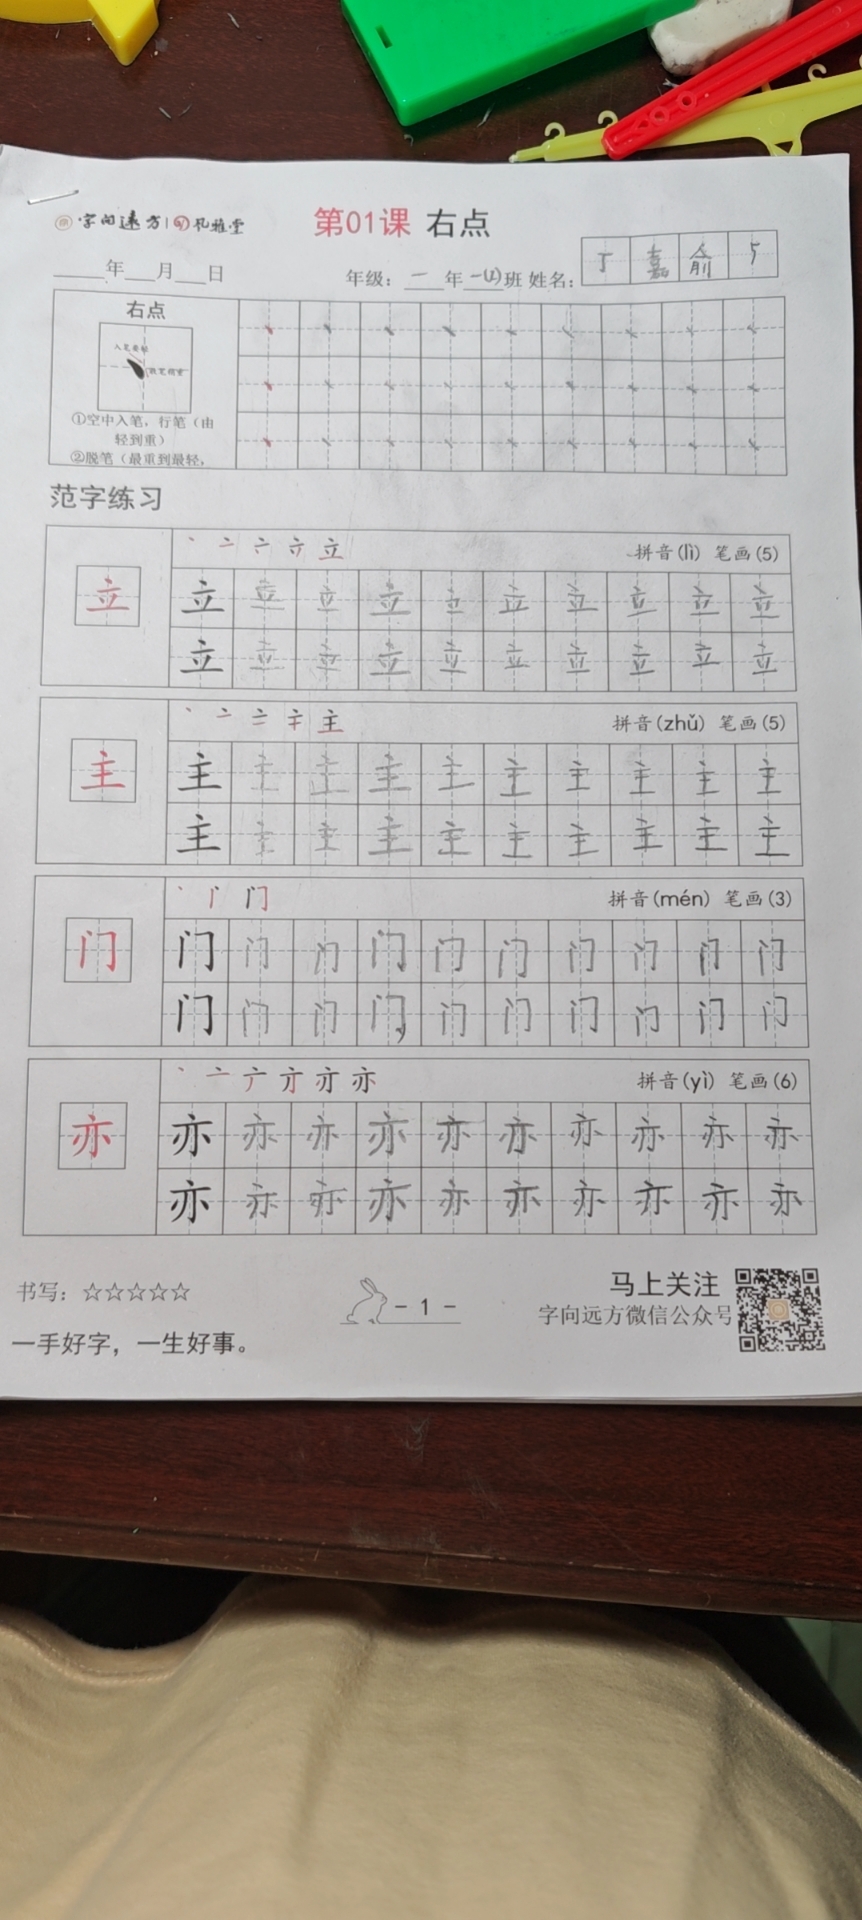 字向远方 | 孔雅堂
第01课 右点
___年___月___日
年级：一年一(2)班 姓名：丁嘉俞5
右点
①空中入笔，行笔（由
轻到重）
②脱笔（最重到最轻，
范字练习
丶 亠 立 拼音(lì) 笔画(5)
立 立 立 立 立 立 立 立 立 立 立
立 立 立 立 立 立 立 立 立 立
丶 亠 主 拼音(zhǔ) 笔画(5)
主 主 主 主 主 主 主 主 主 主 主
主 主 主 主 主 主 主 主 主 主
丶 门 拼音(mén) 笔画(3)
门 门 门 门 门 门 门 门 门 门 门
门 门 门 门 门 门 门 门 门 门
丶 亠 亦 拼音(yì) 笔画(6)
亦 亦 亦 亦 亦 亦 亦 亦 亦 亦 亦
亦 亦 亦 亦 亦 亦 亦 亦 亦 亦
书写：☆☆☆☆☆
- 1 -
马上关注
字向远方微信公众号
一手好字，一生好事。